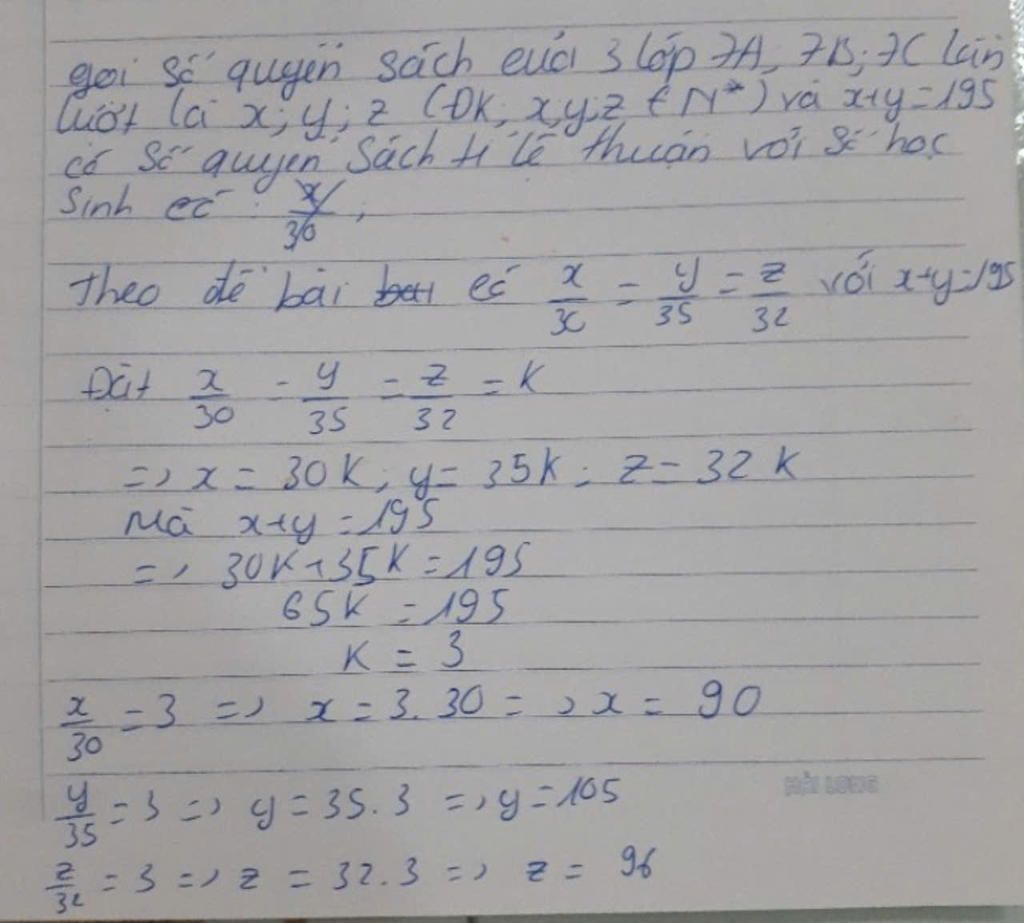 gọi số quyển sách của 3 lớp 7A, 7B; 7C lần
lượt là x; y; z (ĐK; x,y,z ∈ N*) và x+y=195
có số quyển sách tỉ lệ thuận với số học
sinh có : x/30 ;
Theo đề bài có x/30 = y/35 = z/32 với x+y=195
Đặt x/30 = y/35 = z/32 = K
=> x = 30K; y = 35K; z = 32K
Mà x+y = 195
=> 30K+35K = 195
65K = 195
K = 3
x/30 = 3 => x = 3.30 => x = 90
HẢI LONG
y/35 = 3 => y = 35.3 => y = 105
z/32 = 3 => z = 32.3 => z = 96